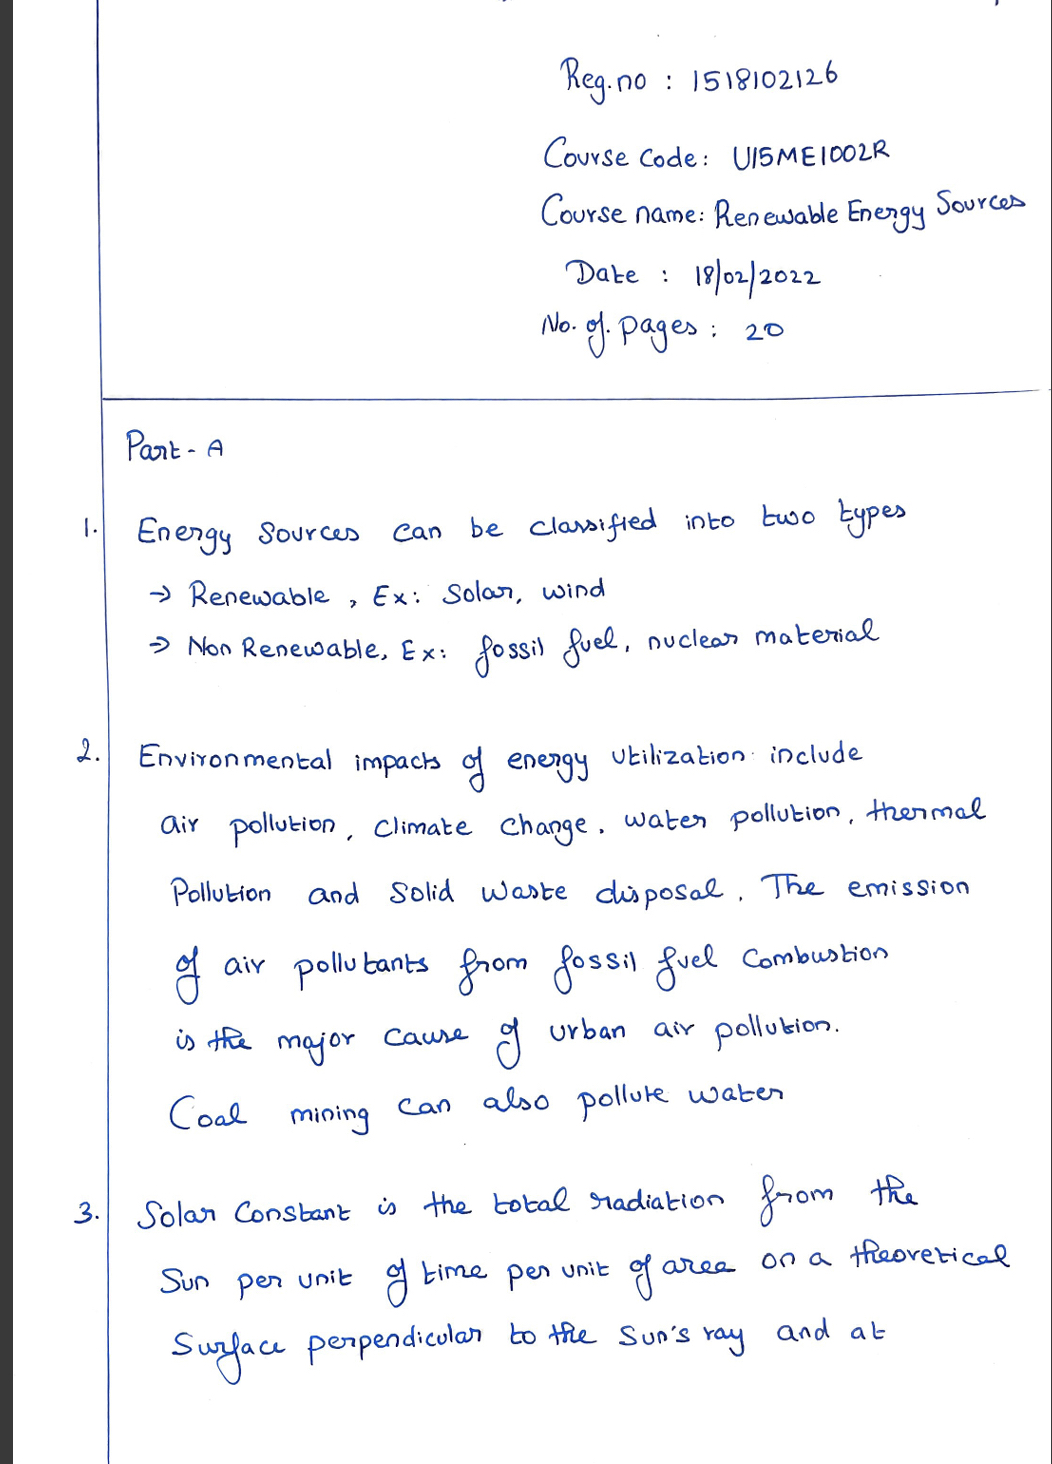 Reg.no : 1518102126
Course Code: U15ME1002R
Course name: Renewable Energy Sources
Date : 18/02/2022
No. of. pages : 20
Part - A
1. Energy Sources can be classified into two types
→ Renewable, Ex: Solar, wind
→ Non Renewable, Ex: fossil fuel, nuclear material
2. Environmental impacts of energy utilization include
air pollution, climate change, water pollution, thermal
Pollution and Solid Waste disposal. The emission
of air pollutants from fossil fuel Combustion
is the major cause of urban air pollution.
Coal mining can also pollute water
3. Solar Constant is the total radiation from the
Sun per unit of time per unit of area on a theoretical
Surface perpendicular to the Sun's ray and at